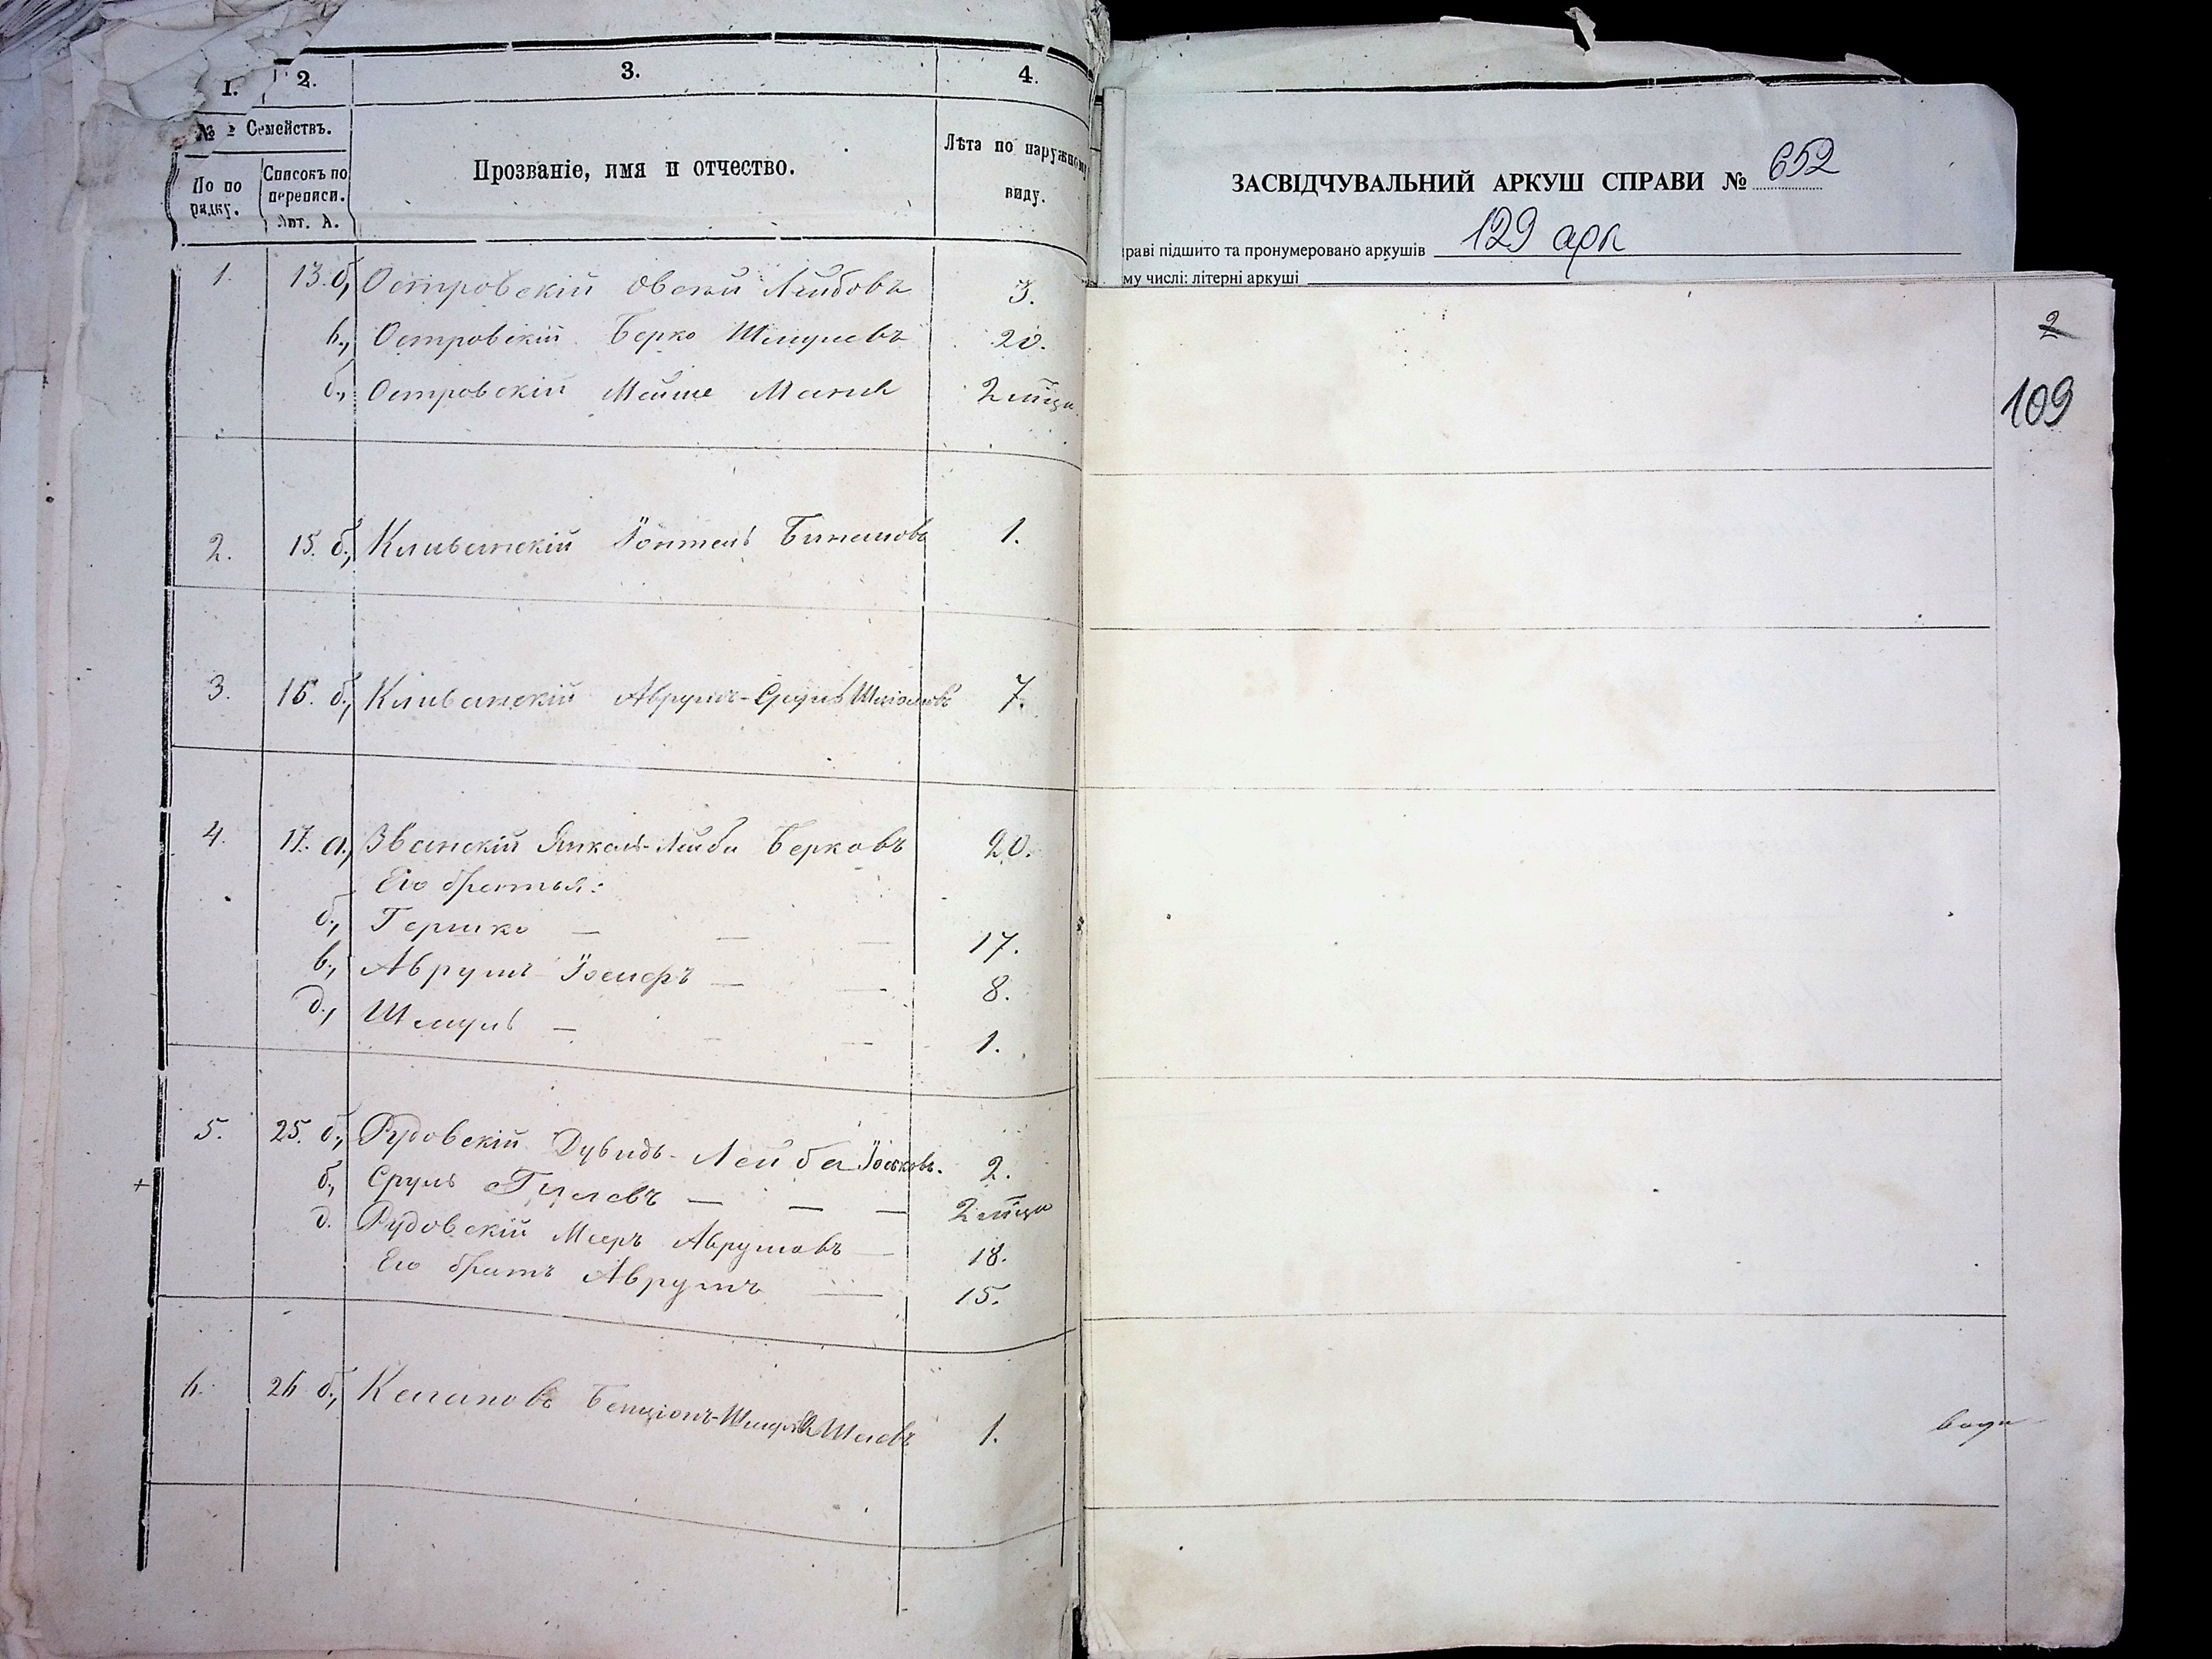 1. 2. 3. 4.
№ Семействъ.
По порядку.
Списокъ по переписи. Лит. А.
Прозваніе, имя и отчество.
Лѣта по наружному виду.
1. 13. б, Островскій Овсей Лейбовъ 3.
Островскій Берко Шмулевъ 20.
Островскій Мейше 2 мѣця
2. 15. б, Кливанскій Биньамовъ 1.
3. 16. б, Кливанскій Аврумъ-Сруль 7.
4. 17. а, Званскій Янкель-Лейба Берковъ 20.
Его братья:
б, Гершко — — — 17.
в, Аврумъ Іосифъ — — 8.
д, Шмуль — — — 1.
5. 25. б, Рудовскій Дувидъ-Лейба Іоськовъ. 2.
б, Сруль — — — 2 мѣця
д. Рудовскій Мееръ Аврумовъ — 18.
Его братъ Аврумъ — 15.
6. 26 б, Бенціонъ-Шмуль 1.
ЗАСВІДЧУВАЛЬНИЙ АРКУШ СПРАВИ № 652
раві підшито та пронумеровано аркушів 129 арк
му числі: літерні аркуші
2
109